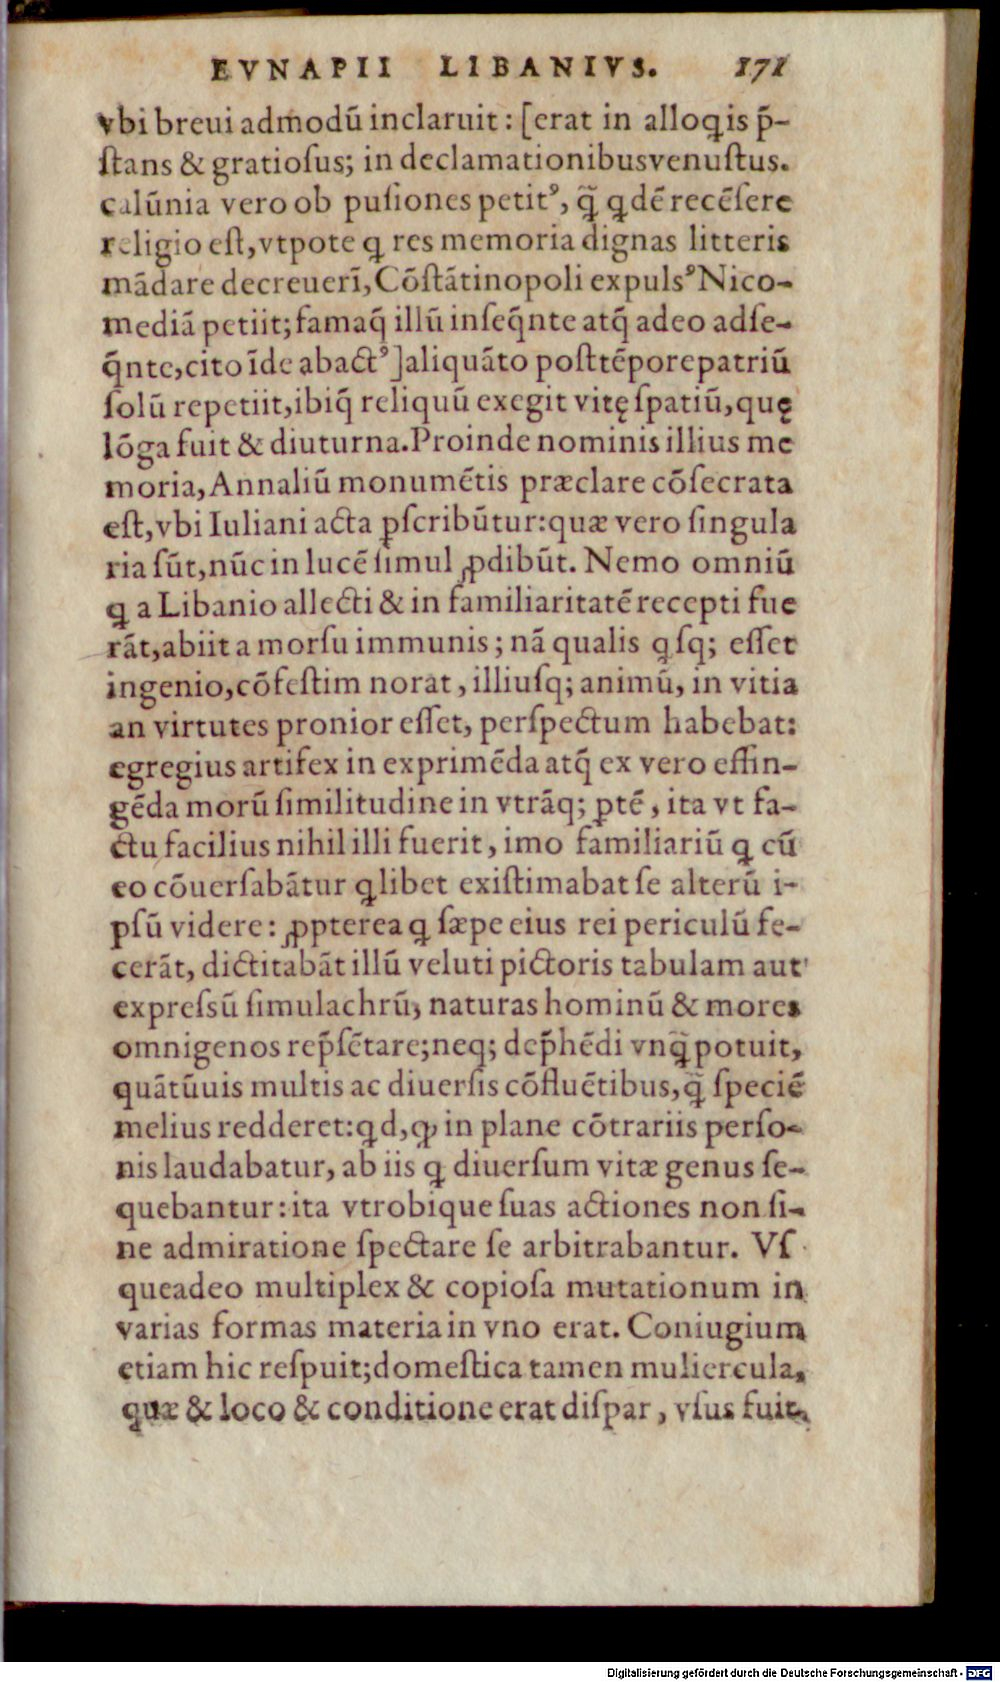 EVNAPII LIBANIVS. 171
vbi breui admodũ inclaruit: [erat in alloqis p̃-
ſtans & gratioſus; in declamationibus venuſtus.
calũnia vero ob puſiones petitꝰ, q̃ qdẽ recẽſere
religio eſt, vtpote q res memoria dignas litteris
mãdare decreueri, Cõſtãtinopoli expulsꝰ Nico-
mediã petiit; famaq̃ illũ inſeq̃nte atq̃ adeo adſe-
q̃nte, cito ĩde abactꝰ] aliquãto poſt tẽpore patriũ
ſolũ repetiit, ibiq̃ reliquũ exegit vitę ſpatiũ, quę
lõga fuit & diuturna. Proinde nominis illius me
moria, Annaliũ monumẽtis præclare cõſecrata
eſt, vbi Iuliani acta ꝑſcribũtur: quæ vero ſingula
ria ſũt, nũc in lucẽ ſimul ꝓdibũt. Nemo omniũ
q a Libanio allecti & in familiaritatẽ recepti fue
rãt, abiit a morſu immunis; nã qualis qſq; eſſet
ingenio, cõfeſtim norat, illiuſq; animũ, in vitia
an virtutes pronior eſſet, perſpectum habebat:
egregius artifex in exprimẽda atq̃ ex vero effin-
gẽda morũ ſimilitudine in vtrãq; ꝑtẽ, ita vt fa-
ctu facilius nihil illi fuerit, imo familiariũ q cũ
eo cõuerſabãtur qlibet exiſtimabat ſe alterũ i-
pſũ videre: ꝓpterea q ſæpe eius rei periculũ fe-
cerãt, dictitabãt illũ veluti pictoris tabulam aut
expreſsũ ſimulachrũ, naturas hominũ & mores
omnigenos rep̃ſẽtare; neq; dep̃hẽdi vnq̃ potuit,
quãtũuis multis ac diuerſis cõfluẽtibus, q̃ ſpeciẽ
melius redderet: qd, ꝙ in plane cõtrariis perſo-
nis laudabatur, ab iis q diuerſum vitæ genus ſe-
quebantur: ita vtrobique ſuas actiones non ſi-
ne admiratione ſpectare ſe arbitrabantur. Vſ
queadeo multiplex & copioſa mutationum in
varias formas materia in vno erat. Coniugium
etiam hic reſpuit; domeſtica tamen muliercula,
quæ & loco & conditione erat diſpar, vſus fuit,
Digitalisierung gefördert durch die Deutsche Forschungsgemeinschaft - DFG